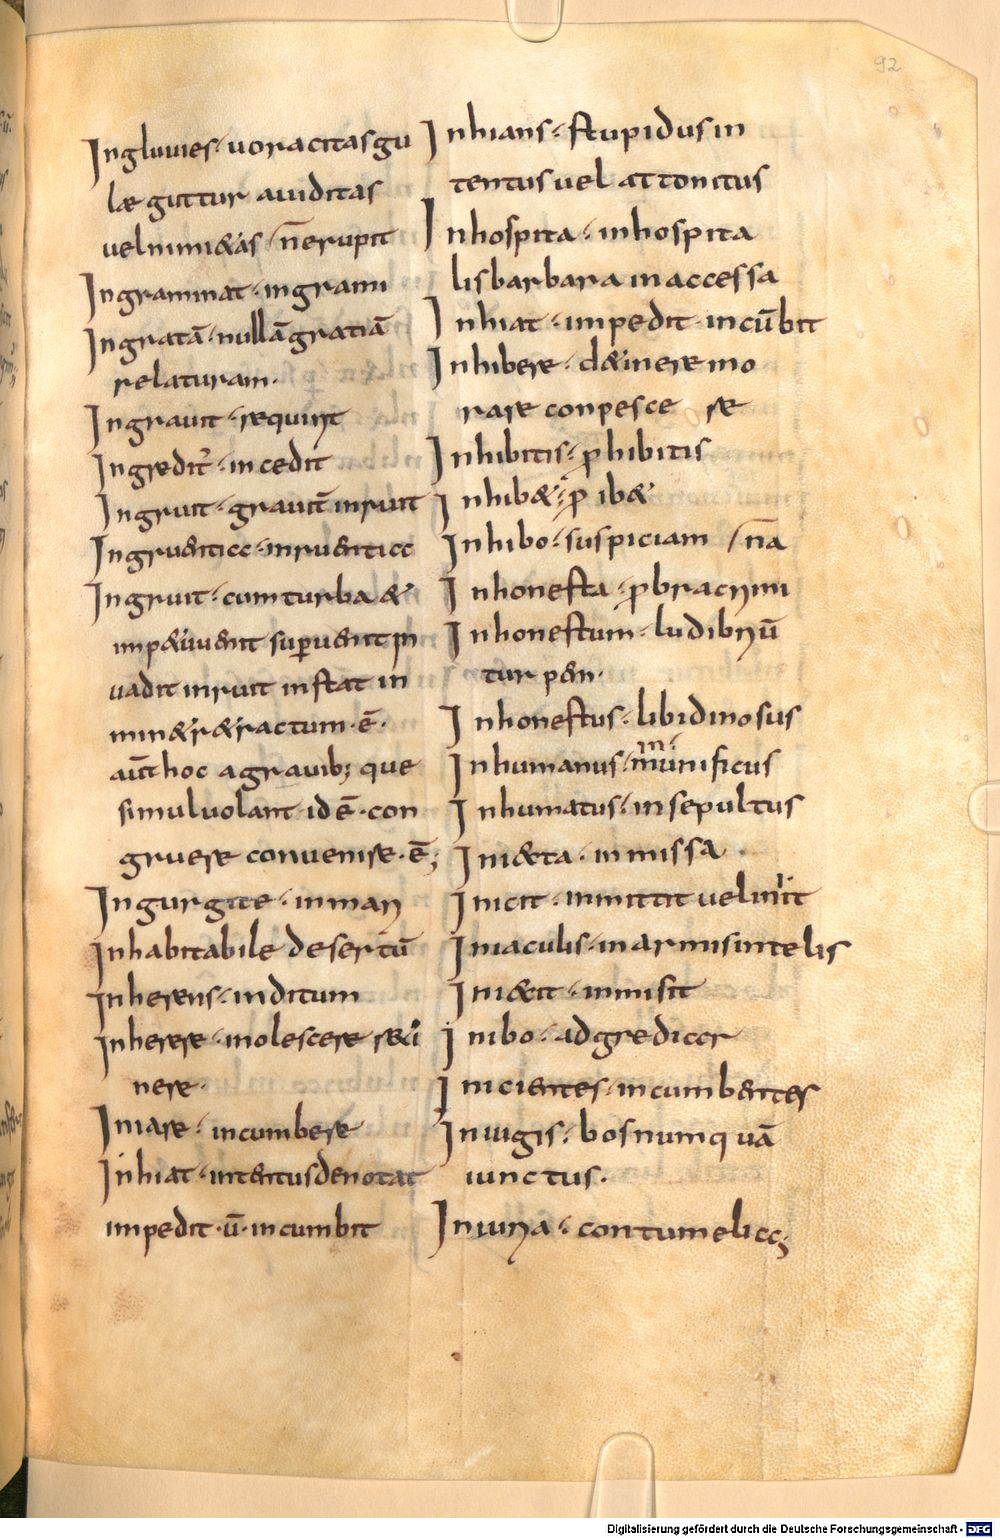 92
Ingluuies· uoracitas gu
læ guttur auiditas
uel nimi&as /n̄ erupit
Ingraminat· ingrami
Ingratā· nullā gratiā
relaturam·
Ingrauit· sequint
Ingredit̃· incedit
Ingruit· grauit̄ inruit
Ingruentia· inruentia
Ingruit· cum turba &
imp&u uenit sup̱uenit in
uadit inruit instat in
min&
aūt hoc a grauib; que
simul uolant id ē· con
gruere conuenire· ē;
Ingurgite· in mari
Inhabitabile desertū
Inherens· inditum
Inherere· inolescere r&i
nere·
Iniare· incumbere
Inhiat· intentus denotat
impedit· ū· incumbit
Inhians· stupidus in
tentus uel attonitus
Inhospita· inhospita
lis barbara inaccessa
Inhiat· impedit· incūbit
Inhibere· d&inere mo
rare conpesce re
Inhibitis· p̱hibitis
Inhib&· p̱ ib&
Inhibo· suspiciam /n̄a
Inhonesta· p̱bra crimi
Inhonestum· ludibriū
tur pen·
Inhonestus· libidinosus
Inhumanus· inmunificus
Inhumatus· insepultus
Iniecta· inmissa
Inicit· inmittit uel
Iniaculis· in armis in telis
Iniecit· inmisit
Inibo· adgrediar
Inicientes· incumbentes
Iniugis· bos numquā
iunctus·
Iniuria· contumelia;
Digitalisierung gefördert durch die Deutsche Forschungsgemeinschaft - DFG